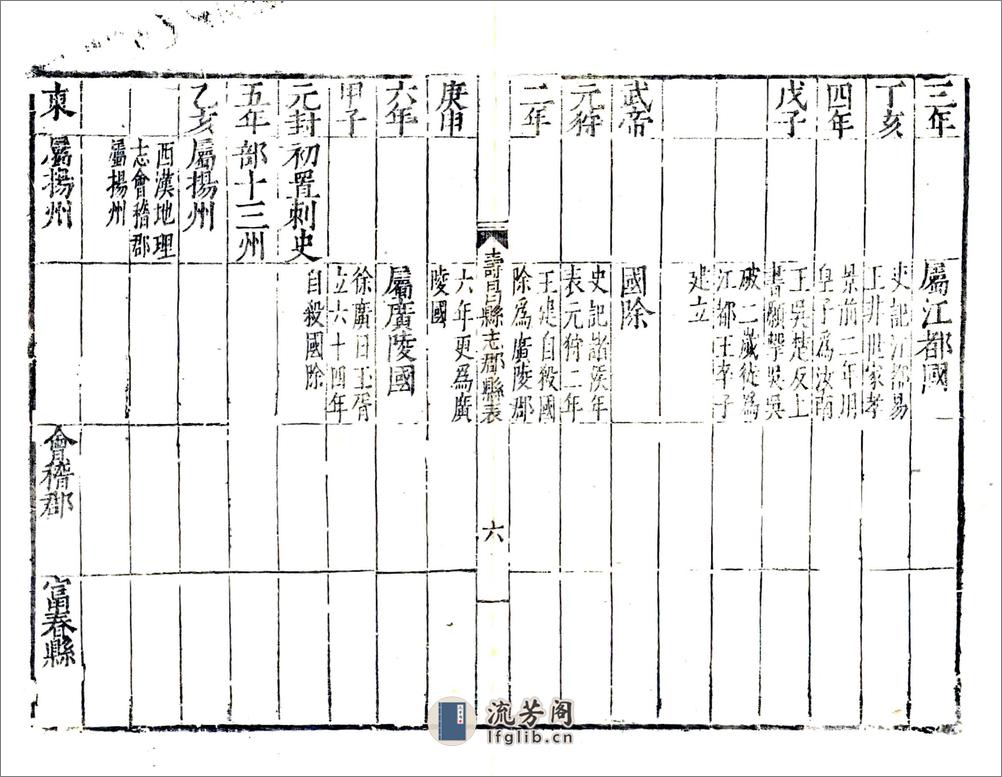 三年
屬江都國
丁亥
史記江都易
王非世家孝
四年
景前二年用
皇子為汝南
戊子
王吳楚反上
書願擊吳吳
破二歲徙為
江都王卒子
建立
武帝
國除
元狩
史記諸侯年
表元狩二年
二年
王建自殺國
除為廣陵郡
壽昌縣志郡縣表
六
庚申
六年更為廣
陵國
六年
屬廣陵國
甲子
徐廣曰王胥
立六十四年
元封
初置刺史
自殺國除
五年
部十三州
乙亥
屬揚州
西漢地理
志會稽郡
屬揚州
東
屬揚州
會稽郡
富春縣
流芳阁
lfglib.cn